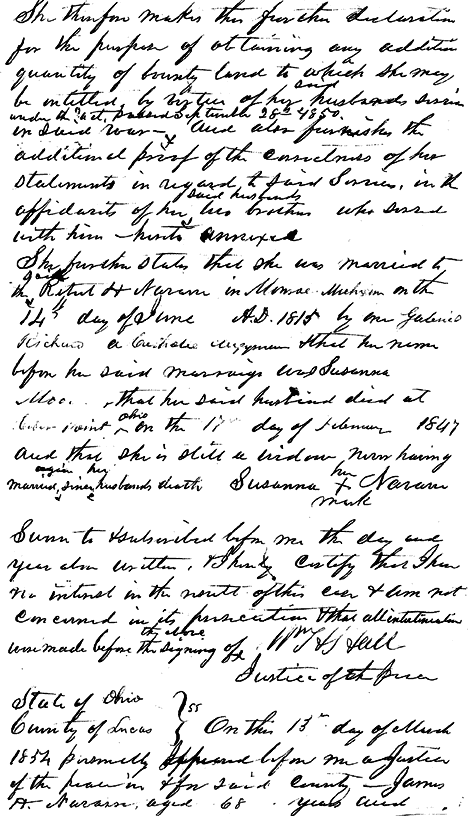 She therefore makes this further declaration
for the purpose of obtaining any addition
quantity of bounty land to which she may
said
be intitled by virtue of her husbands servise
under the act, passed September 28th 1850.
in said war — and also furnishes the
additional proof of the correctness of her
statements in regard to said Service, in the
said husbands
affidavits of her two brothers who served
with him — hereto annexed
She further states that she was married to
said
the Robert H Navarre in Monroe Michigan on the
14th day of June A.D. 1815 by one Gabriel
Richard a Catholic clergyman & that her name
before her said marriage was Susanna
that her said husband died at
Ohio
point on the 17 day of February 1847
and that she is still a widow never having
again her her
married, since husbands death Susanna X Navarre
mark
Sworn to & subscribed before me the day and
year above written, & I hereby certify that I have
no interest in the result of this case & am not
concerned in its prosecution & that all interlineations
the above
were made before the signing of Hall
Justice of the Peace
State of Ohio
County of Lucas } ss On this 13th day of March
1854 personally appeared before me a Justice
of the peace in & for said county — James
H. Navarre, aged 68 years and